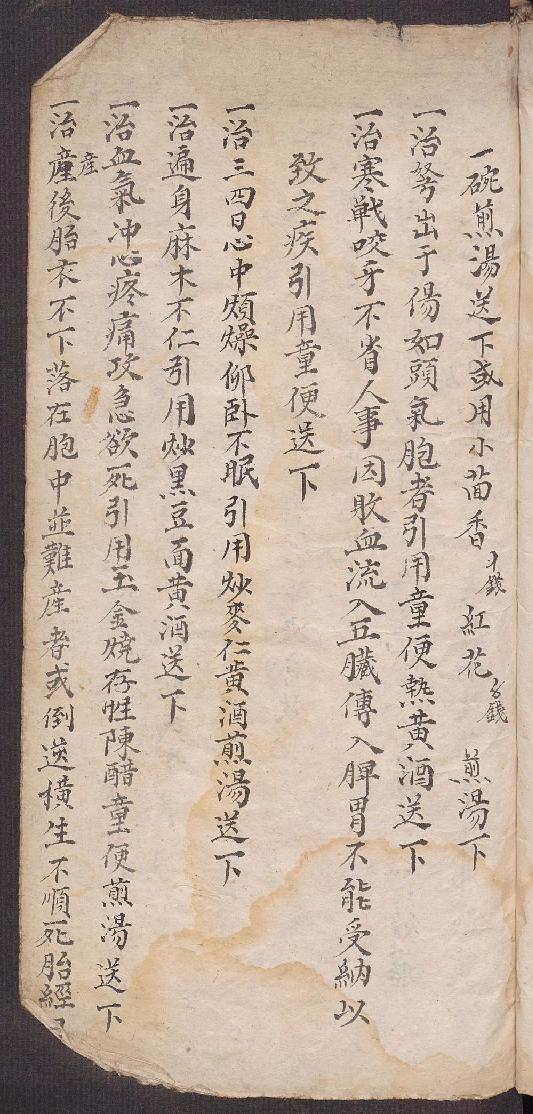 一碗煎湯送下或用小茴香 錢 紅花 錢 煎湯下
一治弩出于傷如頭氣胞者引用童便熱黄酒送下
一治寒戰咬牙不省人事因敗血流入五臟傳入脾胃不能受納以
致之疾引用童便送下
一治三四日心中煩燥仰卧不眠引用炒麥仁黄酒煎湯送下
一治遍身麻木不仁引用炒黒豆面黄酒送下
一治血氣冲心疼痛攻急欲死引用玉金燒存性陳醋童便煎湯送下
産
一治產後胎衣不下落在胞中並難産者或倒送橫生不順死胎經